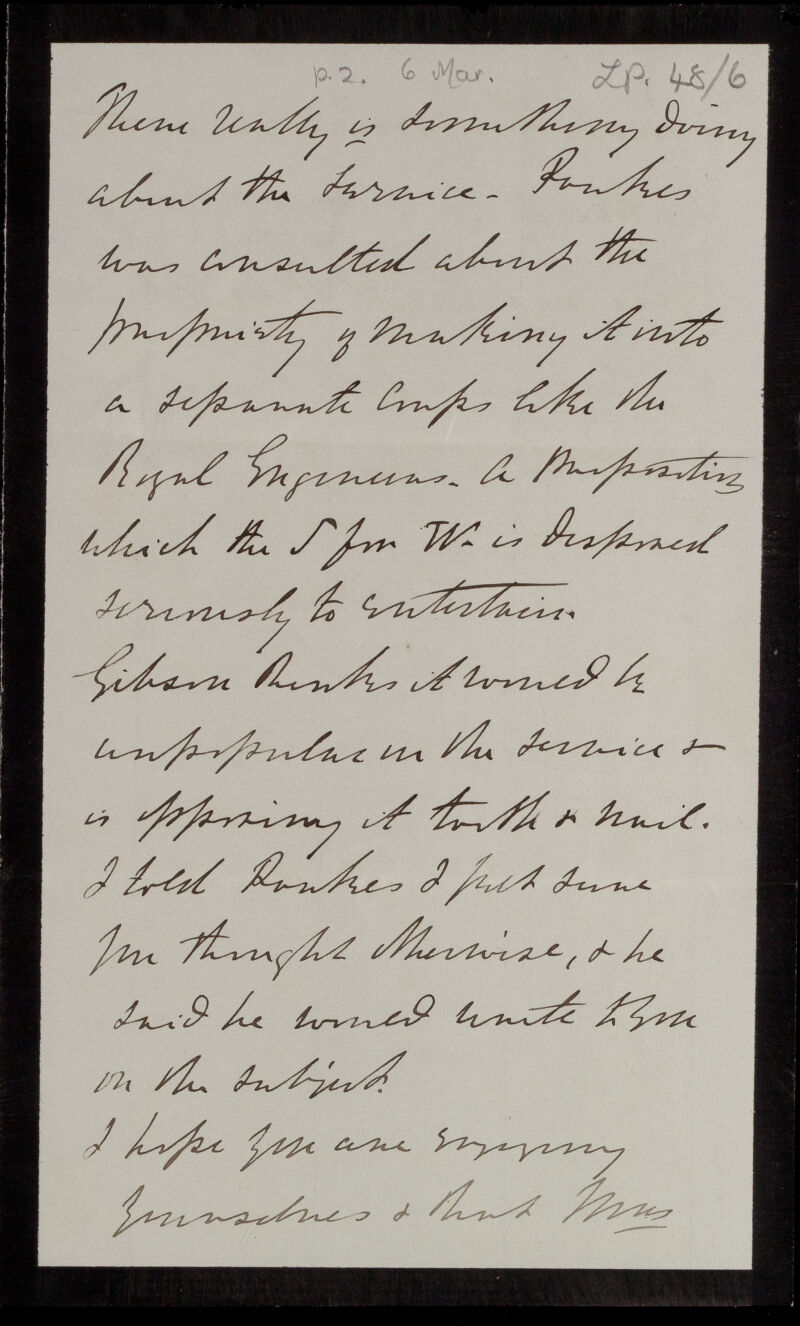 p.2. 6 Mar. LP. 48/6
There really is something doing
about the service - Parkes
was consulted about the
propriety of making it into
a separate Corps like the
Royal Engineers - a proposition
which the S for W. is disposed
seriously to entertain.
Gibson thinks it would be
unpopular in the service &
is opposing it tooth & nail.
I told Parkes I felt sure
you thought otherwise, & he
said he would write to you
on the subject.
I hope you are enjoying
yourselves & that Mrs